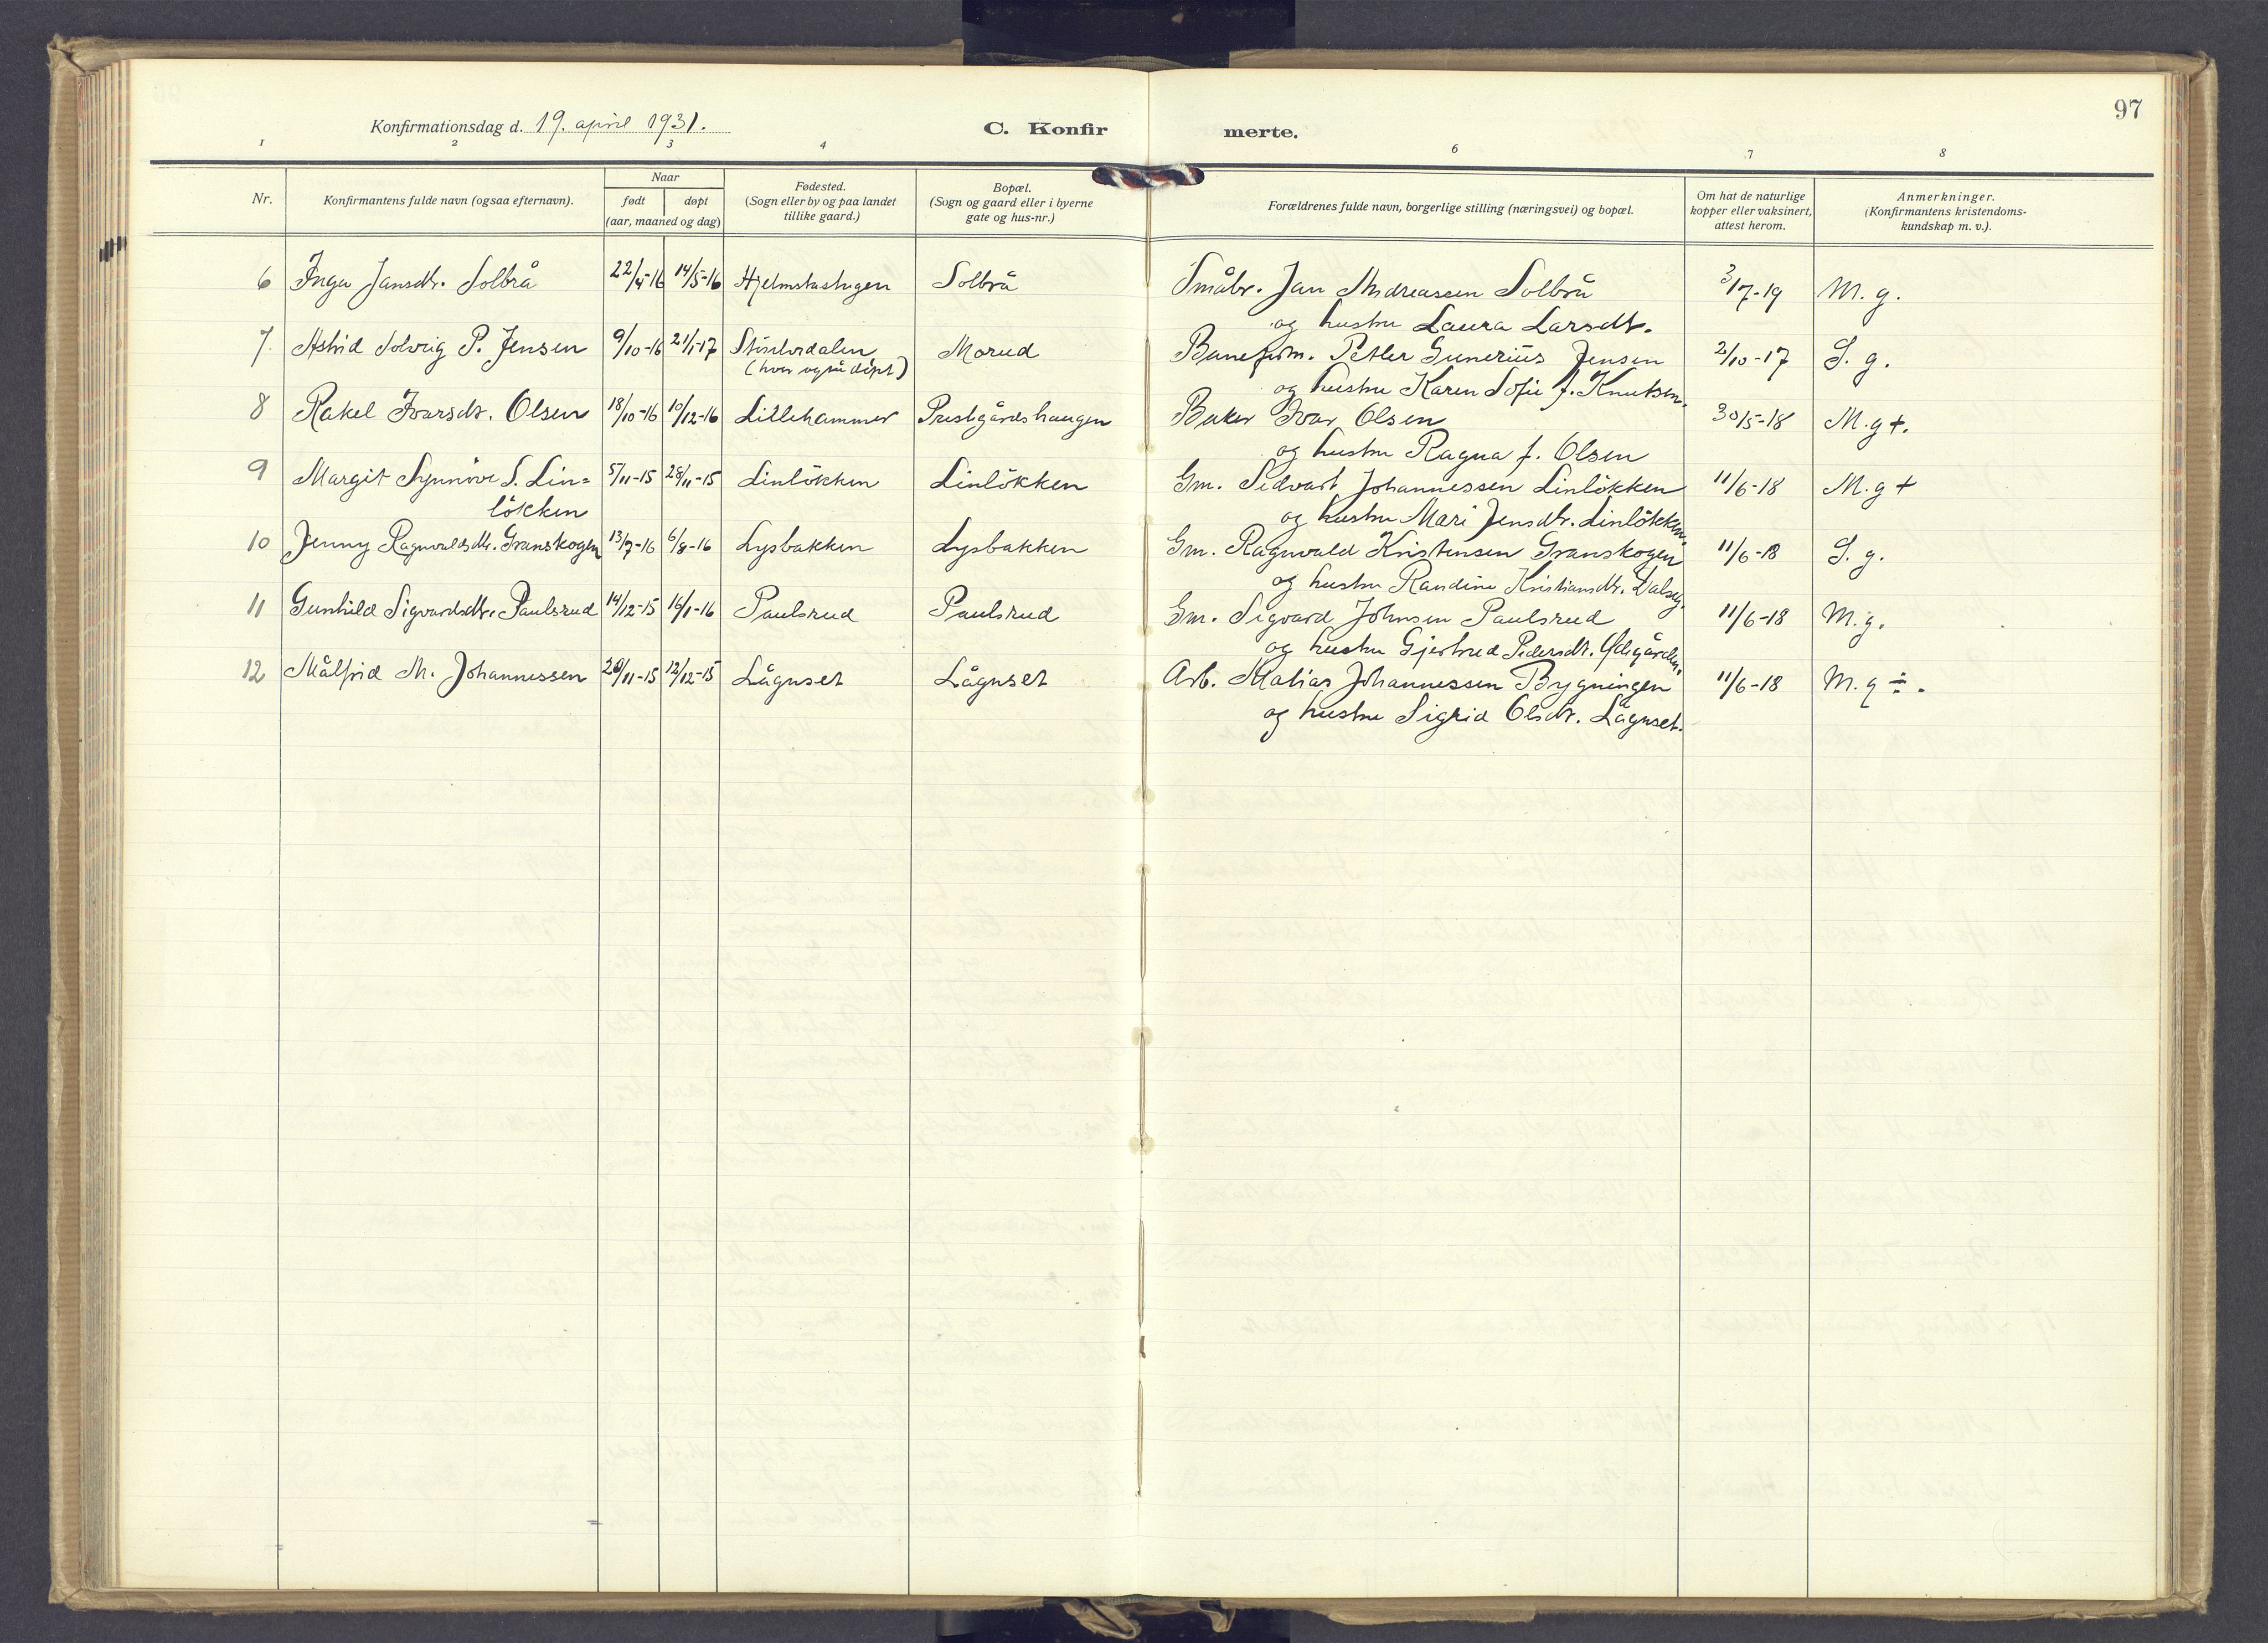 97
Konfirmationsdag d. 19. april 1931.
C. Konfir merte.
1 2 3 4 6 7 8
Nr.
Konfirmantens fulde navn (ogsaa efternavn).
Naar
født døpt
(aar, maaned og dag)
Fødested.
(Sogn eller by og paa landet
tillike gaard.)
Bopæl.
(Sogn og gaard eller i byerne
gate og hus-nr.)
Forældrenes fulde navn, borgerlige stilling (næringsvei) og bopæl.
Om hat de naturlige
kopper eller vaksinert,
attest herom.
Anmerkninger.
(Konfirmantens kristendoms-
kundskap m. v.).
6 Inga Jansdtr. Solbrå 22/4-16 14/5-16 Solbrå Småbr. Jan Andreassen Solbrå 3/7-19 M. g.
og hustru Laura Larsdtr.
7 Astrid Solveig P. Jensen 9/10-16 21/1-17 Morud Baneform. Petter Gunerius Jensen 2/10-17 S. g.
(hvor også döpt) og hustru Karen Sofie f. Knutsen.
8 Rakel Ivarsdr. Olsen 18/10-16 10/12-16 Lillehammer Prestgårdshaugen Baker Ivar Olsen 30/5-18 M. g +.
og hustru Ragna f. Olsen
9 Margit Synnöve S. Lin= 5/11-15 28/11-15 Linlökken Linlökken Gm. Sedvart Johannessen Linlökken 11/6-18 M. g +
lökken og hustru Mari Jensdtr. Linlökken.
10 Jenny Ragnvaldsdtr. Granskogen 13/7-16 6/8-16 Lysbakken Lysbakken Gm. Ragnvald Kristensen Granskogen 11/6-18 S. g.
og hustru Randine Kristiansdtr. Dalseg.
11 Gunhild Sigvardsdtr. Paulsrud 14/12-15 16/1-16 Paulsrud Paulsrud Gm. Sigvard Johnsen Paulsrud 11/6-18 M. g.
og hustru Gjertrud Pedersdt. Ødegården.
12 Målfrid M. Johannessen 20/11-15 12/12-15 Lågnset Lågnset Arb. Matias Johannessen Bygningen 11/6-18 M. g ÷.
og hustru Sigrid Olsdtr. Lågnset.